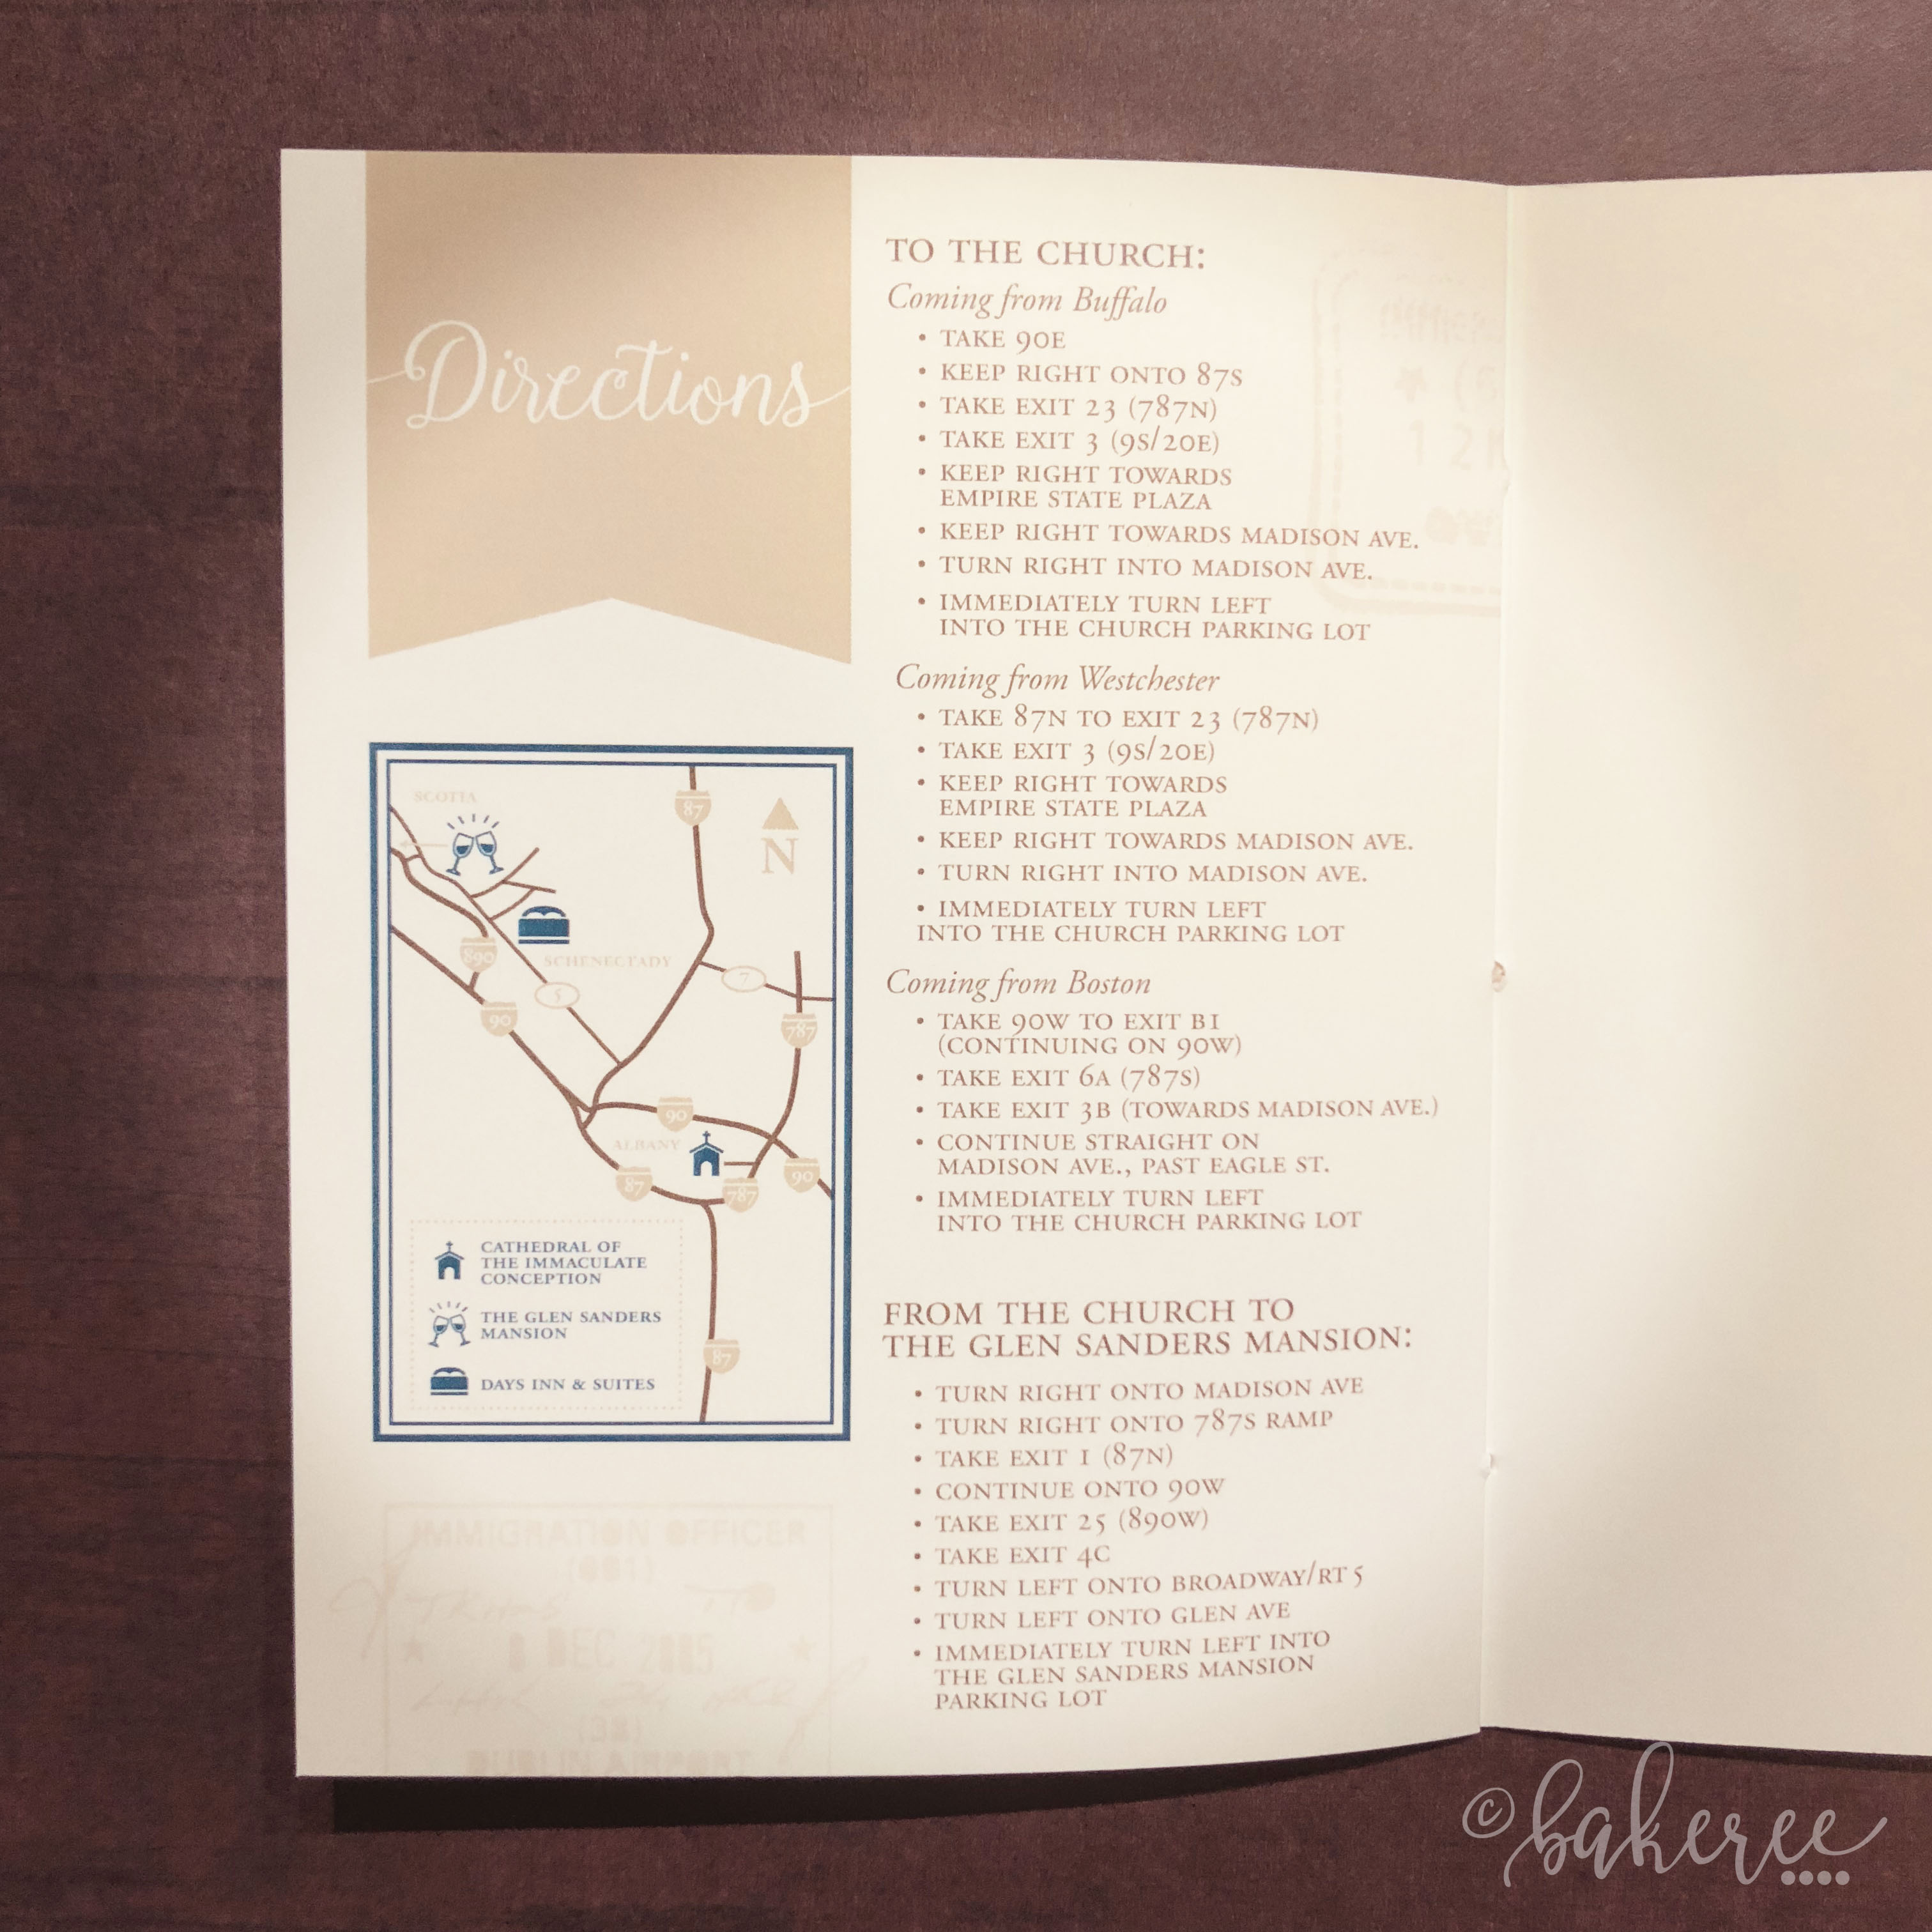 Directions
TO THE CHURCH:
Coming from Buffalo
• TAKE 90E
• KEEP RIGHT ONTO 87S
• TAKE EXIT 23 (787N)
• TAKE EXIT 3 (9S/20E)
• KEEP RIGHT TOWARDS
EMPIRE STATE PLAZA
• KEEP RIGHT TOWARDS MADISON AVE.
• TURN RIGHT INTO MADISON AVE.
• IMMEDIATELY TURN LEFT
INTO THE CHURCH PARKING LOT
Coming from Westchester
• TAKE 87N TO EXIT 23 (787N)
• TAKE EXIT 3 (9S/20E)
• KEEP RIGHT TOWARDS
EMPIRE STATE PLAZA
• KEEP RIGHT TOWARDS MADISON AVE.
• TURN RIGHT INTO MADISON AVE.
• IMMEDIATELY TURN LEFT
INTO THE CHURCH PARKING LOT
Coming from Boston
• TAKE 90W TO EXIT B1
(CONTINUING ON 90W)
• TAKE EXIT 6A (787S)
• TAKE EXIT 3B (TOWARDS MADISON AVE.)
• CONTINUE STRAIGHT ON
MADISON AVE., PAST EAGLE ST.
• IMMEDIATELY TURN LEFT
INTO THE CHURCH PARKING LOT
FROM THE CHURCH TO
THE GLEN SANDERS MANSION:
• TURN RIGHT ONTO MADISON AVE
• TURN RIGHT ONTO 787S RAMP
• TAKE EXIT 1 (87N)
• CONTINUE ONTO 90W
• TAKE EXIT 25 (890W)
• TAKE EXIT 4C
• TURN LEFT ONTO BROADWAY/RT 5
• TURN LEFT ONTO GLEN AVE
• IMMEDIATELY TURN LEFT INTO
THE GLEN SANDERS MANSION
PARKING LOT
SCOTIA
87
N
890
SCHENECTADY
5
7
90
787
90
ALBANY
87
787
90
87
CATHEDRAL OF
THE IMMACULATE
CONCEPTION
THE GLEN SANDERS
MANSION
DAYS INN & SUITES
IMMIGRATION OFFICER
(661)
8 DEC 2005
(38)
DUBLIN AIRPORT
12
© bakeree